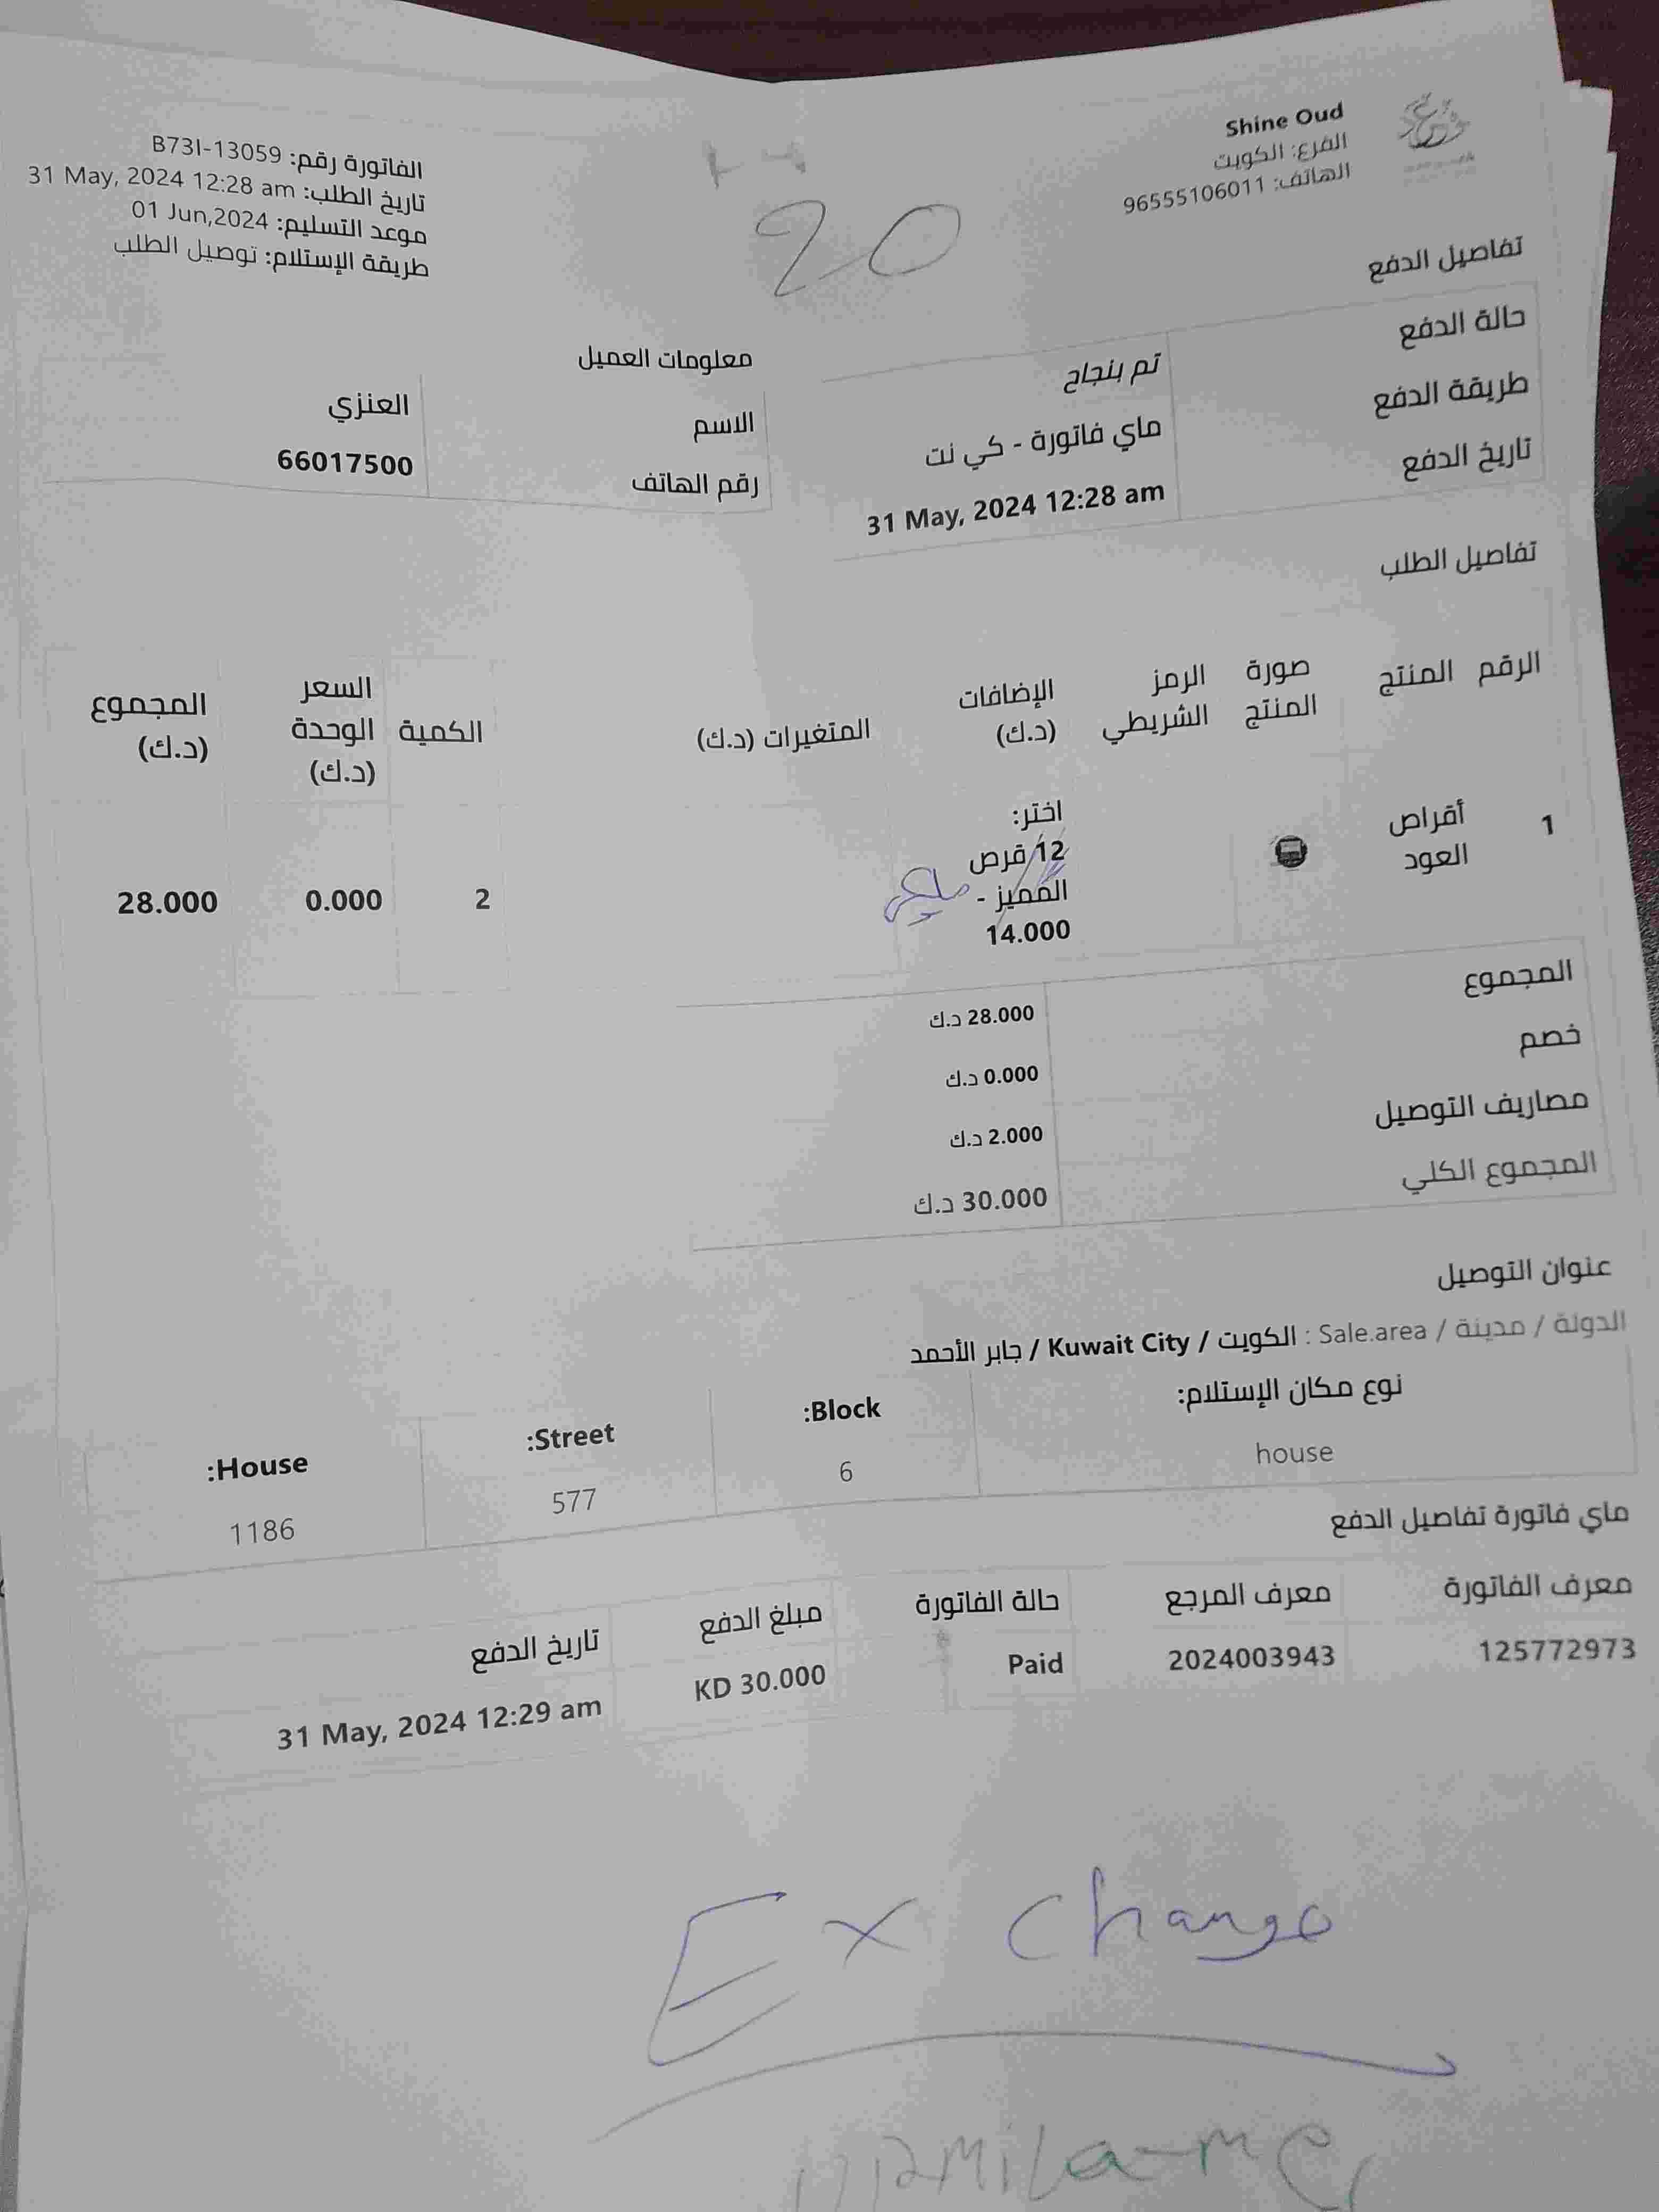 Shine Oud
الفرع: الكويت
الهاتف: 96555106011
الفاتورة رقم: B73I-13059
تاريخ الطلب: 31 May, 2024 12:28 am
موعد التسليم: 01 Jun,2024
طريقة الإستلام: توصيل الطلب
20
تفاصيل الدفع
حالة الدفع تم بنجاح
طريقة الدفع ماي فاتورة - كي نت
تاريخ الدفع 31 May, 2024 12:28 am
معلومات العميل
الاسم العنزي
رقم الهاتف 66017500
تفاصيل الطلب
الرقم المنتج صورة المنتج الرمز الشريطي الإضافات (د.ك) المتغيرات (د.ك) الكمية السعر الوحدة (د.ك) المجموع (د.ك)
اختر:
1 أقراص العود 12 قرص المميز - 14.000 2 0.000 28.000
المجموع 28.000 د.ك
خصم 0.000 د.ك
مصاريف التوصيل 2.000 د.ك
المجموع الكلي 30.000 د.ك
عنوان التوصيل
الدولة / مدينة / Sale.area : الكويت / Kuwait City / جابر الأحمد
نوع مكان الإستلام: Block: Street: House:
house 6 577 1186
ماي فاتورة تفاصيل الدفع
معرف الفاتورة معرف المرجع حالة الفاتورة مبلغ الدفع تاريخ الدفع
125772973 2024003943 Paid KD 30.000 31 May, 2024 12:29 am
Ex change